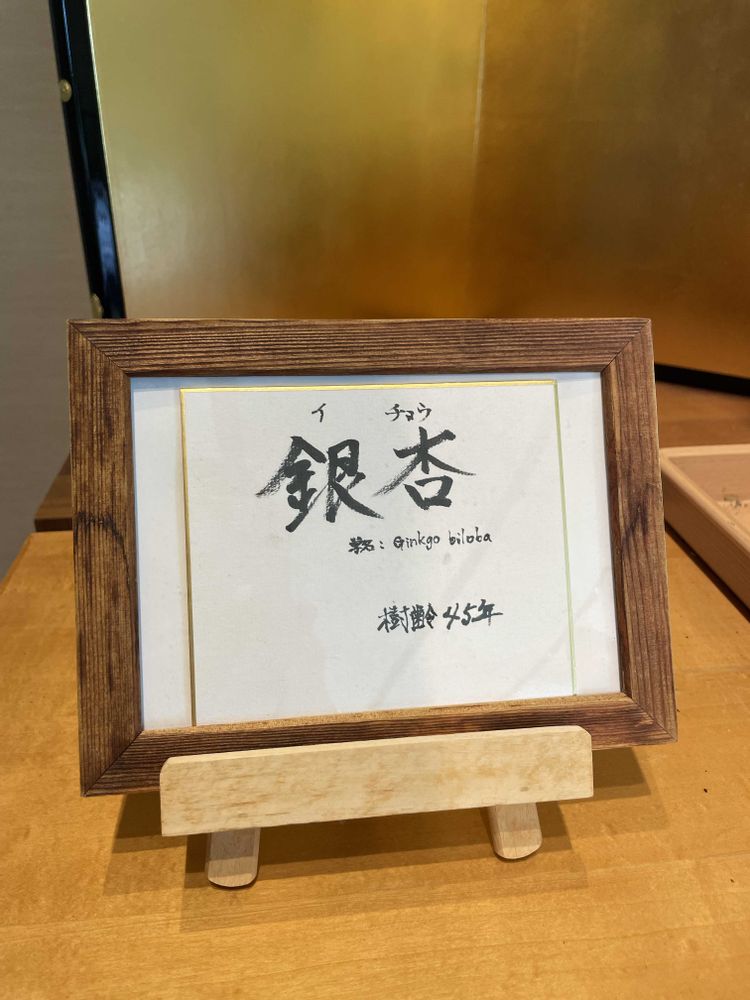 イ チョウ
銀杏
学名：Ginkgo biloba
樹齢45年